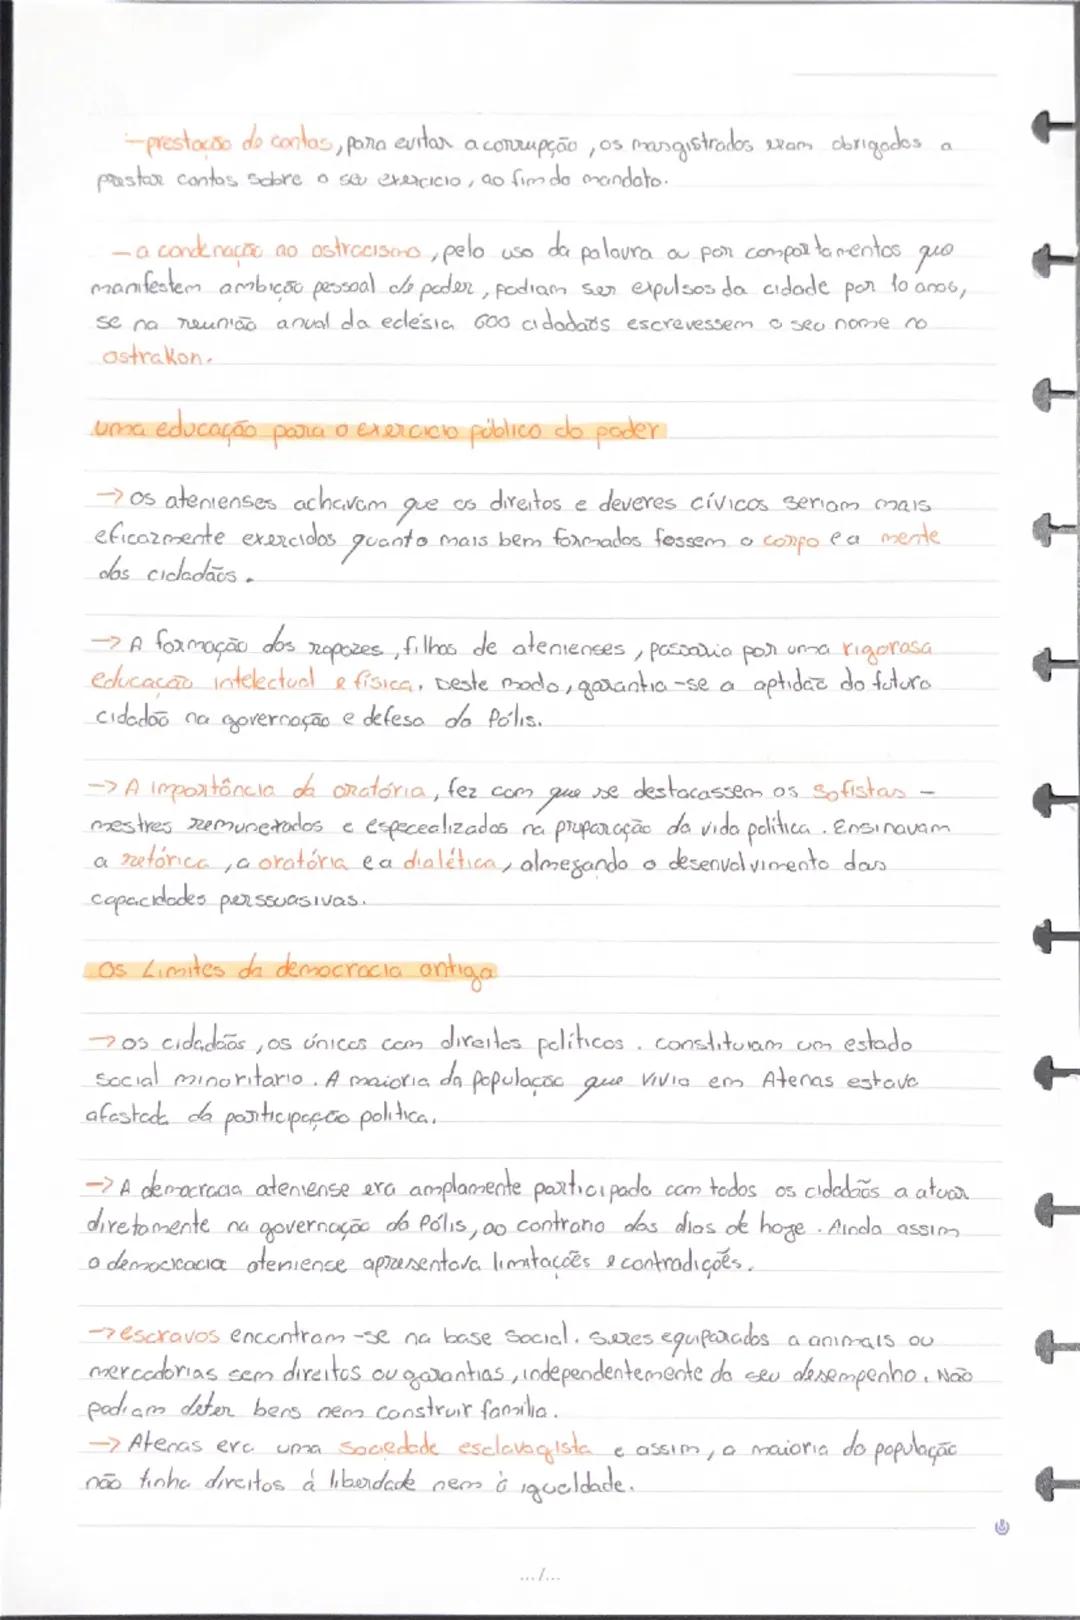 -prestação de contas, para evitar a corrupção, os margistrados eram obrigados a
prestar contas sobre o seu exercício, ao fim do mandato.
- a condenação ao ostracismo, pelo uso da palavra ou por comportamentos que
manifestem ambição pessoal do poder, podiam ser expulsos da cidade por 10 anos,
se na reunião anual da eclésia 600 cidadãos escrevessem o seu nome no
ostrakon.
uma educação para o exercício público do poder
→ os atenienses achavam que os direitos e deveres cívicos seriam mais
eficazmente exercidos quanto mais bem formados fossem o corpo e a mente
dos cidadãos.
→ A formação dos rapazes, filhos de atenienses, passaria por uma rigorosa
educação intelectual e física. Deste modo, garantia-se a aptidão do futuro
cidadão na governação e defesa da Pólis.
→ A importância da oratória, fez com que se destacassem os sofistas -
mestres remunerados e especealizados na preparação da vida política. Ensinavam
a retórica, a oratória e a dialética, almejando o desenvolvimento das
capacidades perssuasivas.
Os Limites da democracia antiga
→ os cidadãos, os únicos com direitos políticos. constituiam um estado
social minoritario. A maioria da população que vivia em Atenas estava
afastada da participação politica.
→ A democracia ateniense era amplamente participada com todos os cidadãos a atuar
diretamente na governação da Pólis, ao contrario dos dias de hoje. Ainda assim
a democracia atenience apresentava limitações e contradições.
→ escravos encontram-se na base social. Seres equiparados a animais ou
mercadorias sem direitos ou garantias, independentemente do seu desempenho. Não
podiam deter bens nem construir família.
→ Atenas era uma sociedade esclavagista e assim, a maioria da população
não tinha direitos á liberdade nem á igualdade.
.../...